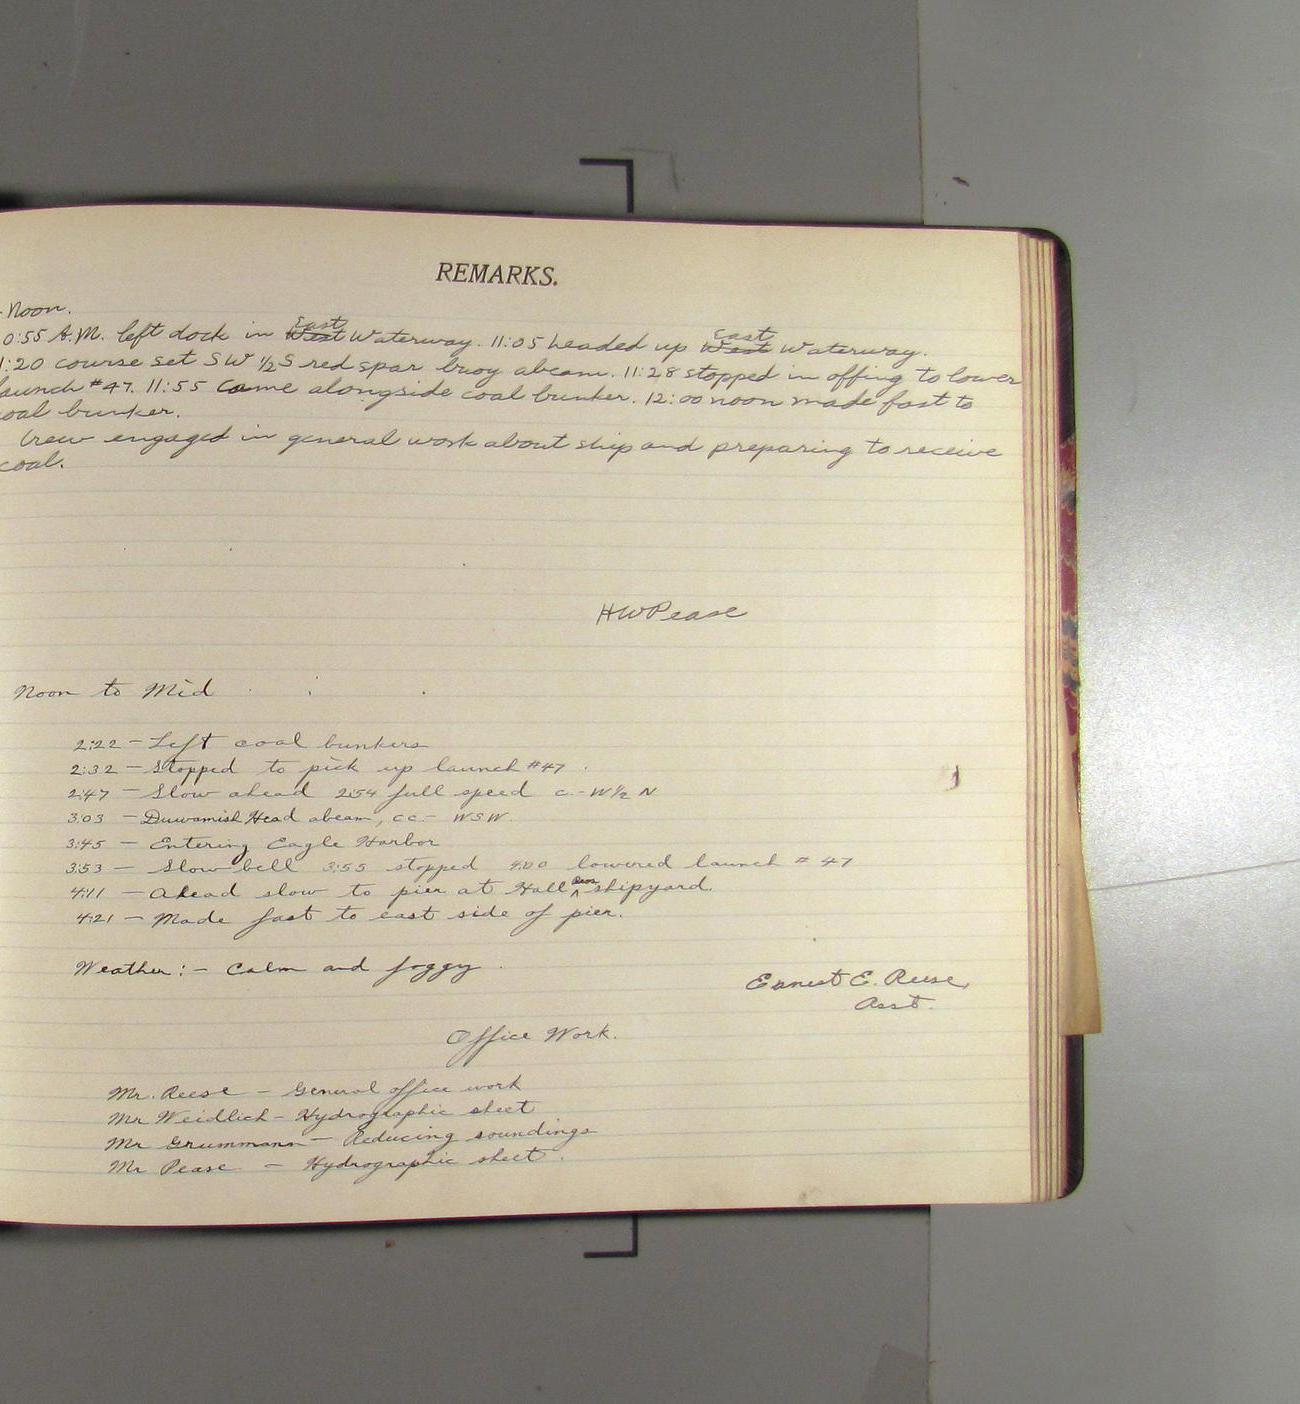 REMARKS.
- Noon.
0:55 A.M. left dock in West East Waterway. 11:05 headed up West East Waterway.
1:20 course set SW 1/2 S red spar buoy abeam. 11:28 stopped in offing to lower
launch #47. 11:55 Came alongside coal bunker. 12:00 noon made fast to
coal bunker.
Crew engaged in general work about ship and preparing to receive
coal.
HWPease
Noon to Mid
2:22 - Left coal bunkers
2:32 - Stopped to pick up launch #47.
2:47 - Slow ahead 2:54 full speed c.- W 1/2 N
3:03 - Duwamish Head abeam, cc.- WSW.
3:45 - Entering Eagle Harbor
3:53 - Slow bell 3:55 stopped 4:00 lowered launch # 47
4:11 - Ahead slow to pier at Hall Bros shipyard.
4:21 - Made fast to east side of pier.
Weather:- Calm and foggy.
Ernest E. Reese,
Asst.
Office Work.
Mr. Reese - General office work
Mr Weidlich - Hydrographic sheet
Mr Grummann - Reducing soundings
Mr Pease - Hydrographic sheet.